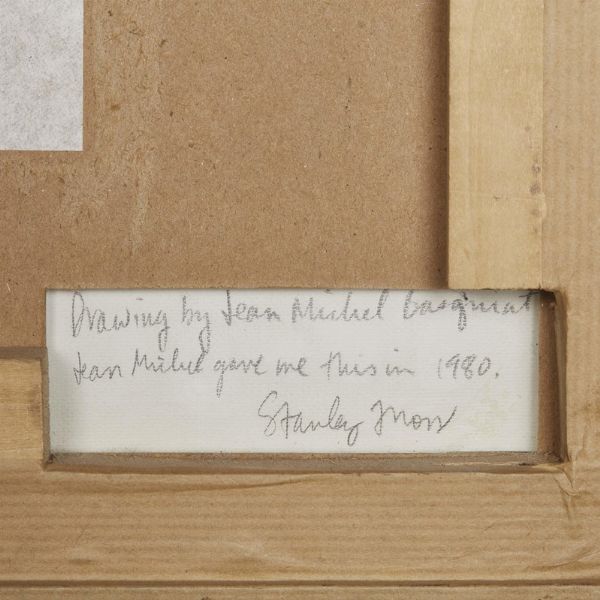 Drawing by Jean Michel Basquiat
Jean Michel gave me this in 1980.
Stanley Moss